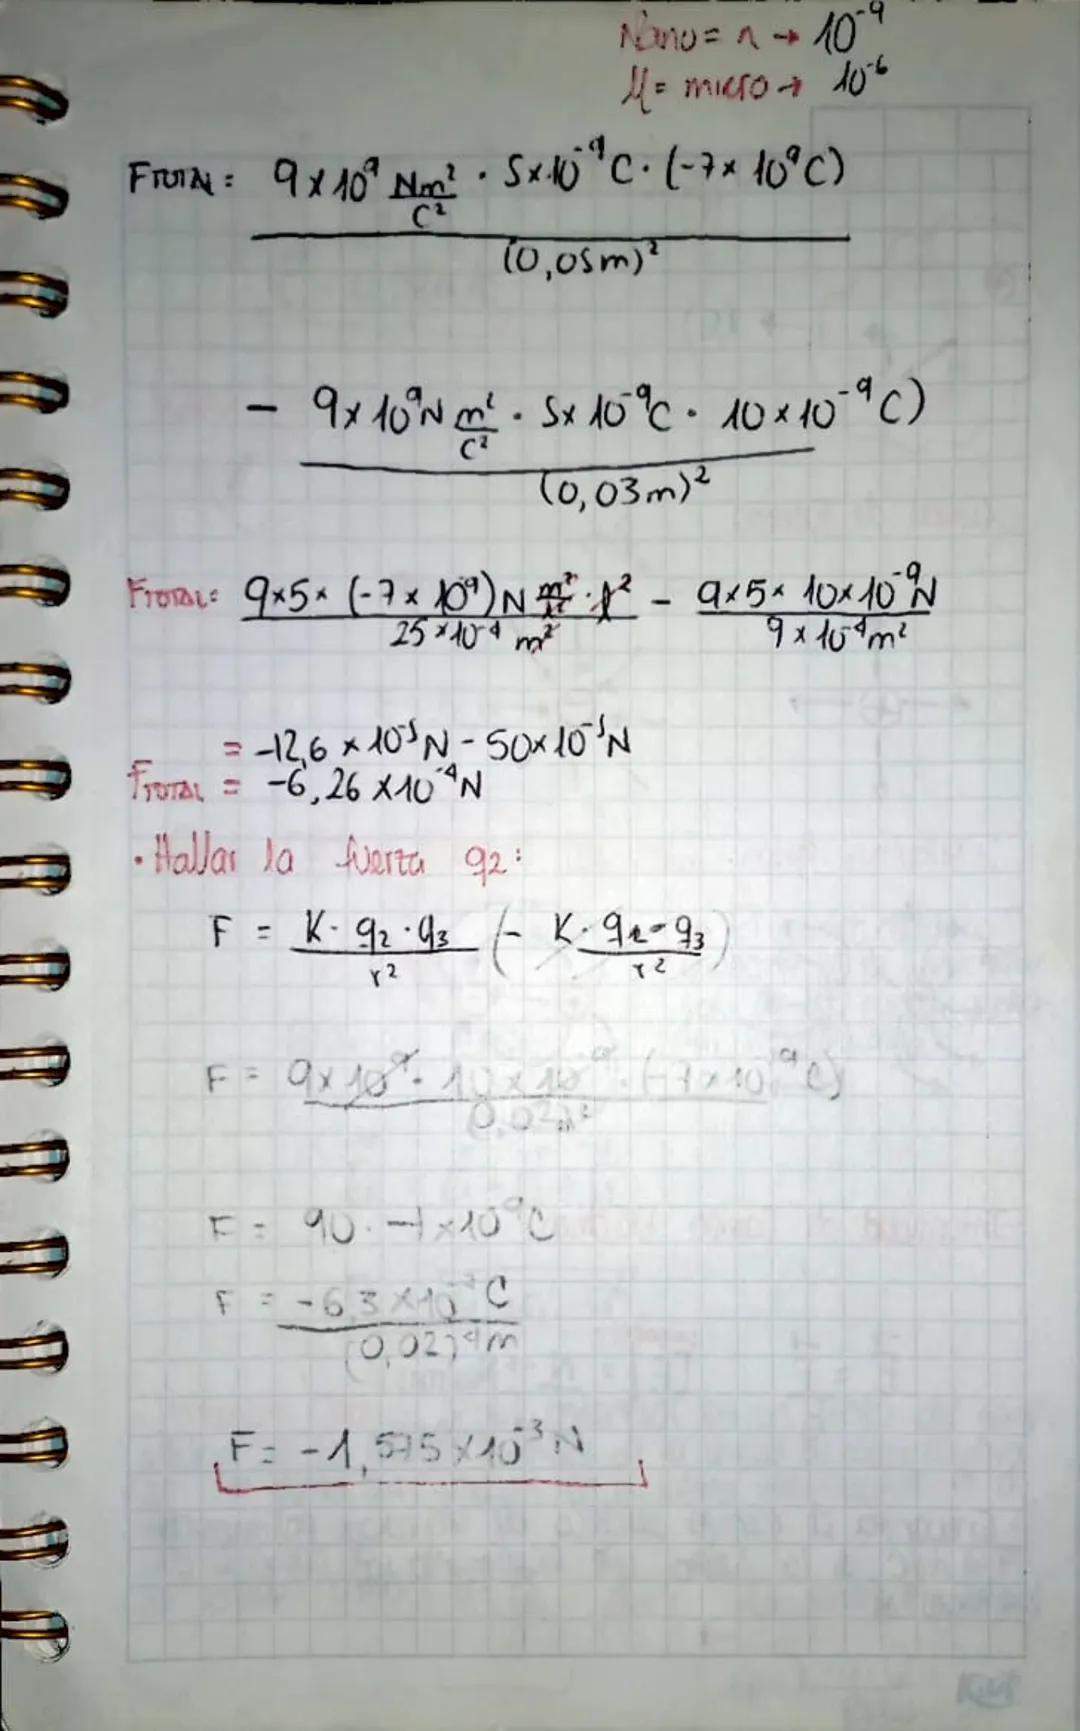 Nano = n → 10⁻⁹
μ = micro → 10⁻⁶
FTOTAL = 9 x 10⁹ Nm²/C² · 5x10⁻⁹ C · (-7 x 10⁹ C)
(0,05m)²
- 9 x 10⁹ N m²/C² · 5x 10⁻⁹ C · 10 x 10⁻⁹ C)
(0,03m)²
FTOTAL = 9x5x (-7 x 10⁹) N m²/C² · C² - 9x5x 10x10⁻⁹ N
25 x 10⁻⁴ m² 9 x 10⁻⁴ m²
= -12,6 x 10⁻⁵ N - 50x10⁻⁵ N
FTOTAL = -6,26 x10⁻⁴ N
· Hallar la fuerza q2:
F = K · q2 · q3 (- K · q2 - q3)
r² r²
F = 9x10⁹ · 10x10⁻⁹ · (-7x10⁻⁹ C)
0,02²
F = 90 · -7x10⁻⁹ C
F = -6,3 x10⁻⁷ C
(0,02)² m
F = -1,575 x 10⁻³ N